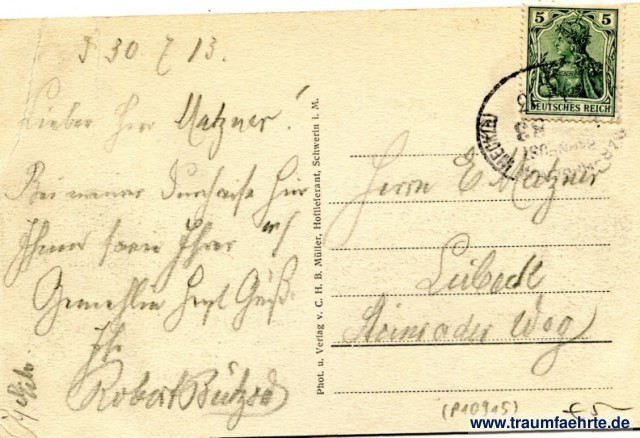 30 7 13.
Lieber Herr Matzner!
Bei meiner Durchreise hier
Ihnen Ihrer
Gemahlin herzl Grüße
Ihr
Robert
Phot. u. Verlag v. C. H. B. Müller, Hoflieferant, Schwerin i. M.
5 5
DEUTSCHES REICH
Herrn E Matzner
Lübeck
Steinrader Weg
(P10915)
€ 5-
www.traumfaehrte.de